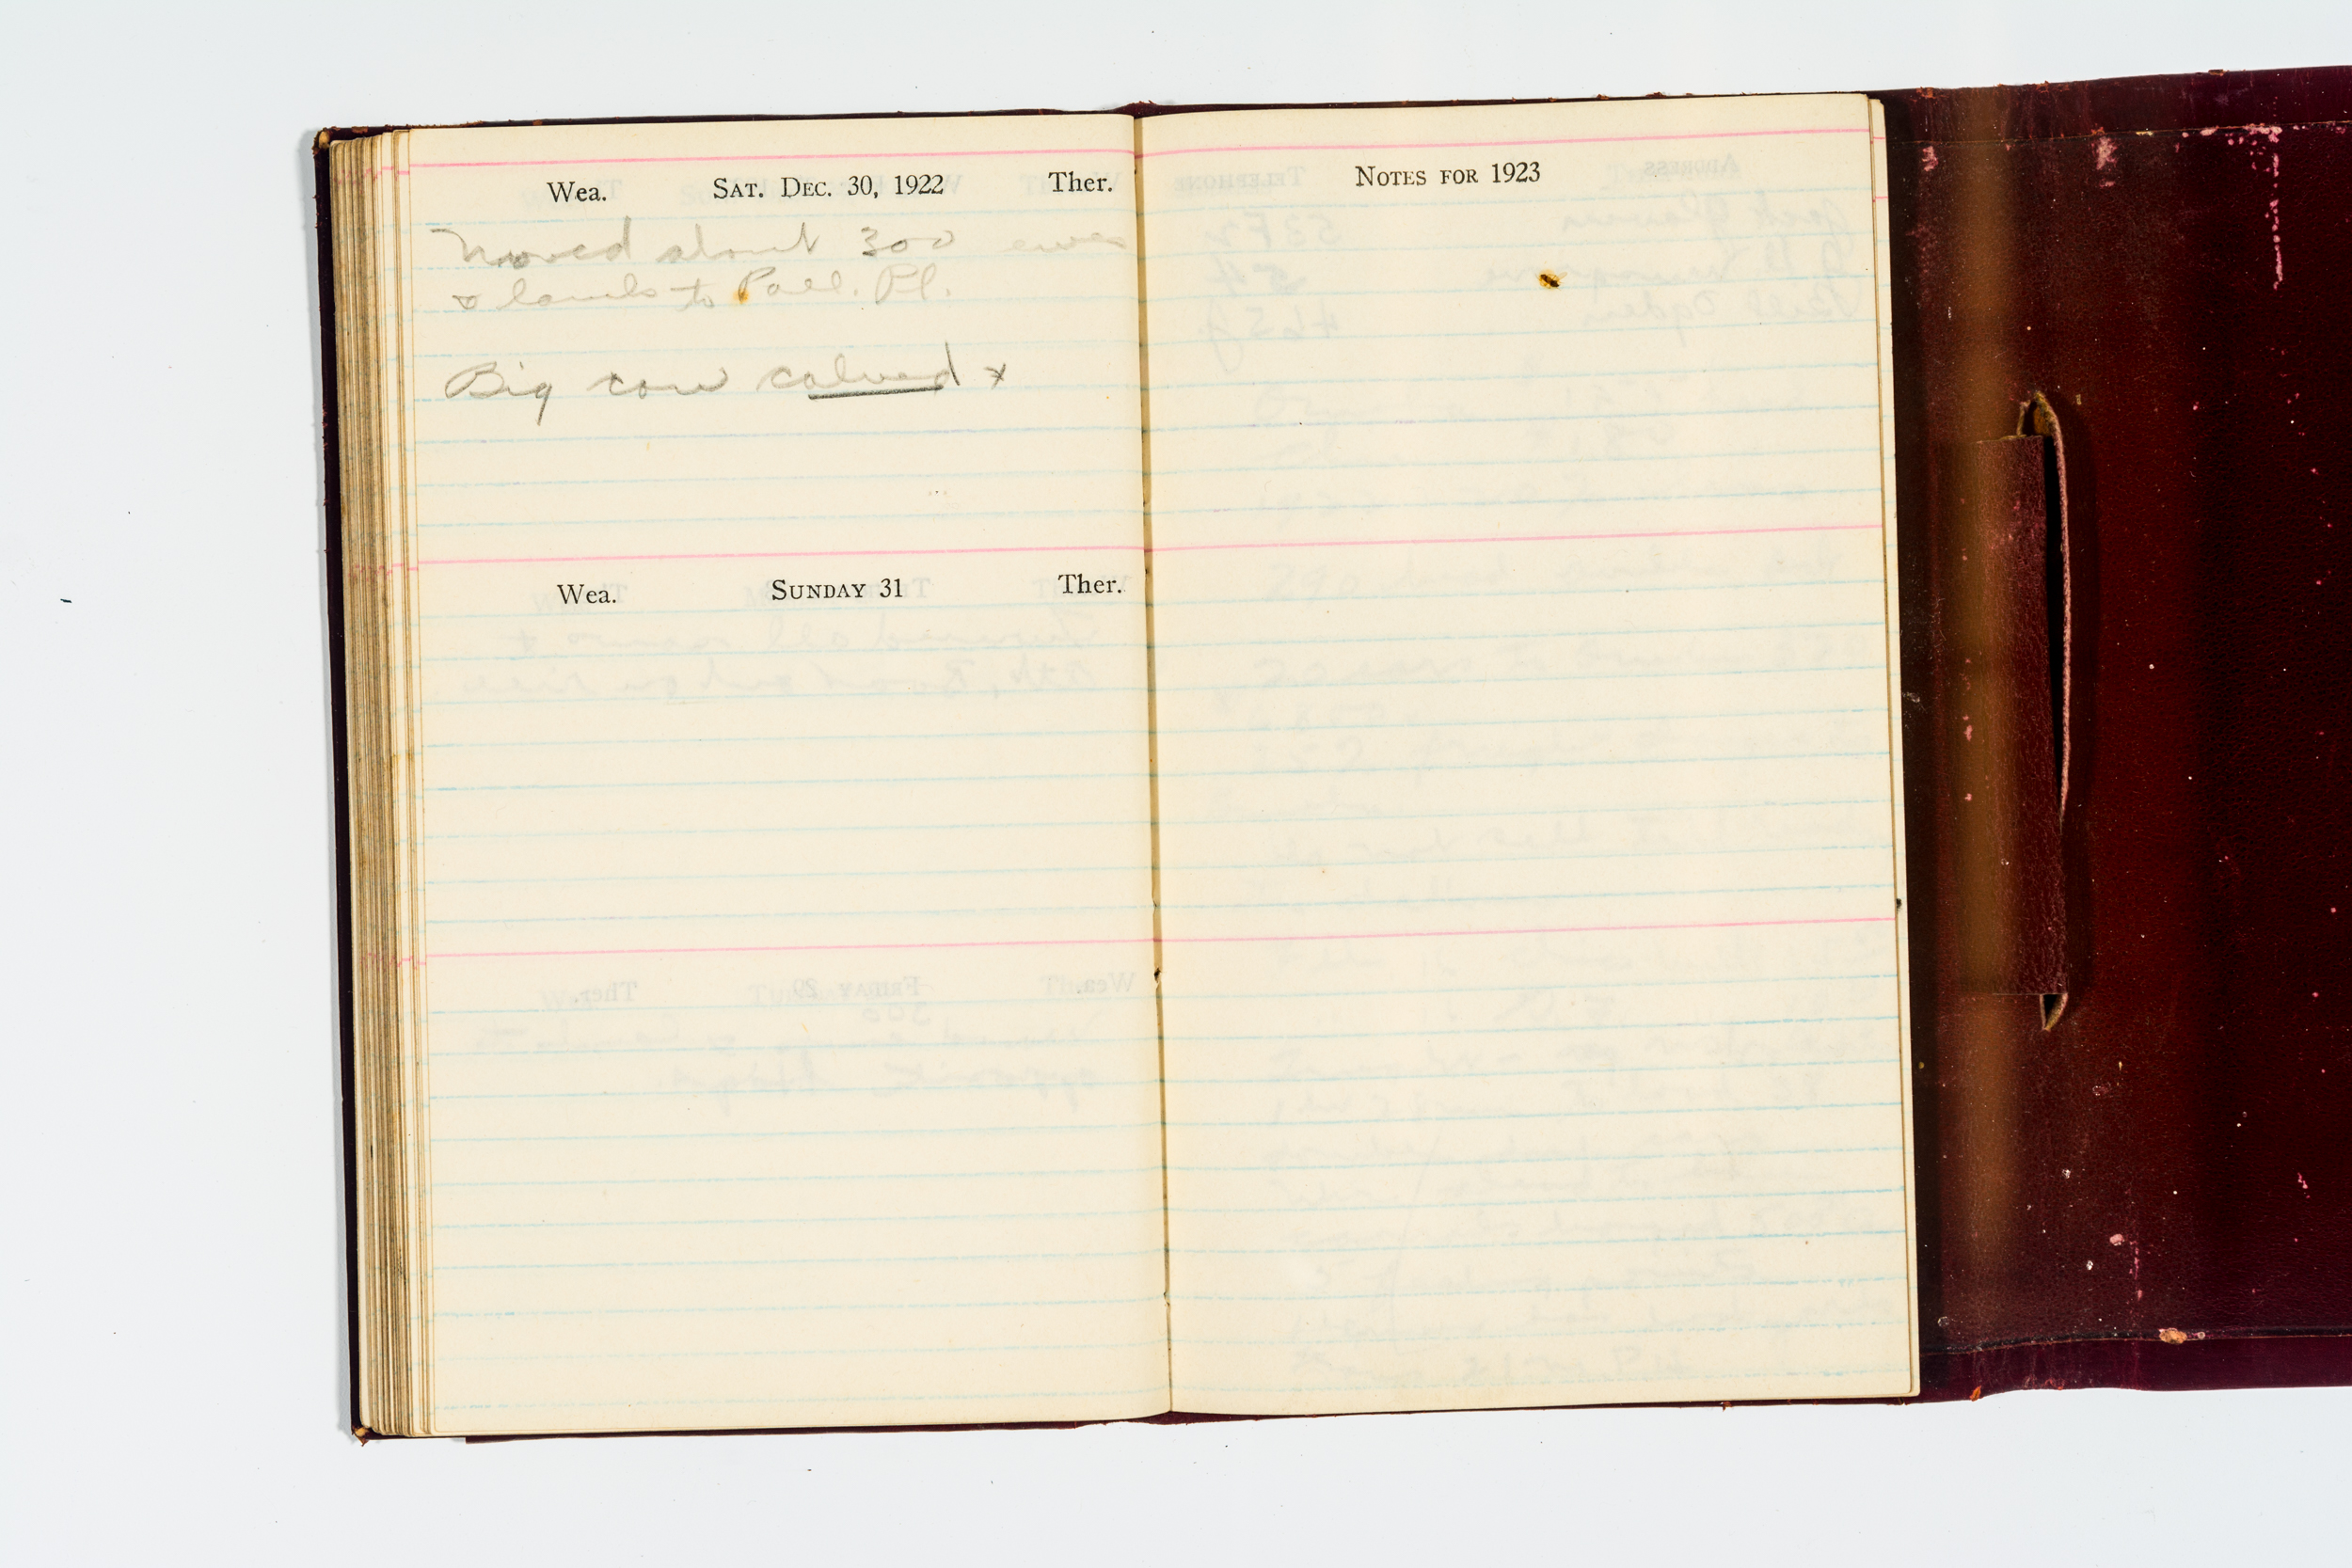 Wea. Sat. Dec. 30, 1922 Ther.
Moved about 300 ewes
& lambs to Pall. Pl.
Big cow calved x
Wea. Sunday 31 Ther.
Notes for 1923